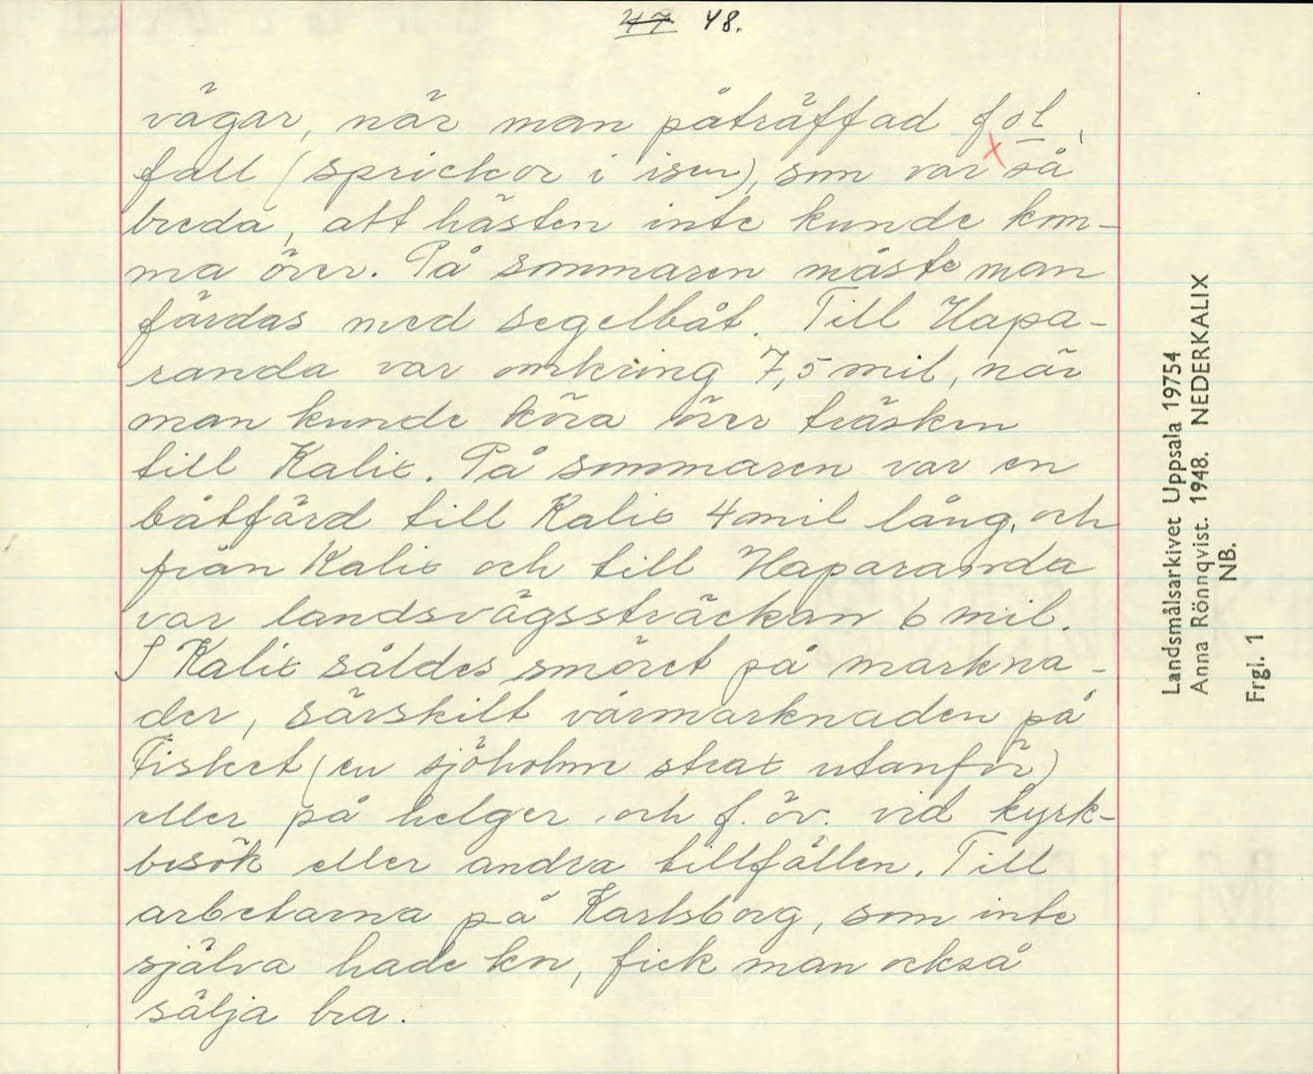 47 48.
vägar, när man påträffad fol,
fall (sprickor i isen), som var så
breda, att hästen inte kunde kom-
ma över. På sommaren måste man
färdas med segelbåt. Till Hapa-
randa var omkring 7,5 mil, när
man kunde köra över träsken
till Kalix. På sommaren var en
båtfärd till Kalix 4 mil lång, och
från Kalix och till Haparanda
var landsvägssträckan 6 mil.
I Kalix såldes smöret på markna-
der, särskilt vårmarknaden på
Fisket (en sjöholm strax utanför)
eller på helger och f. öv. vid kyrk-
besök eller andra tillfällen. Till
arbetarna på Karlsborg, som inte
själva hade ko, fick man också
sälja bra.
Landsmålsarkivet Uppsala 19754
Anna Rönnqvist. 1948. NEDERKALIX
NB.
Frgl. 1